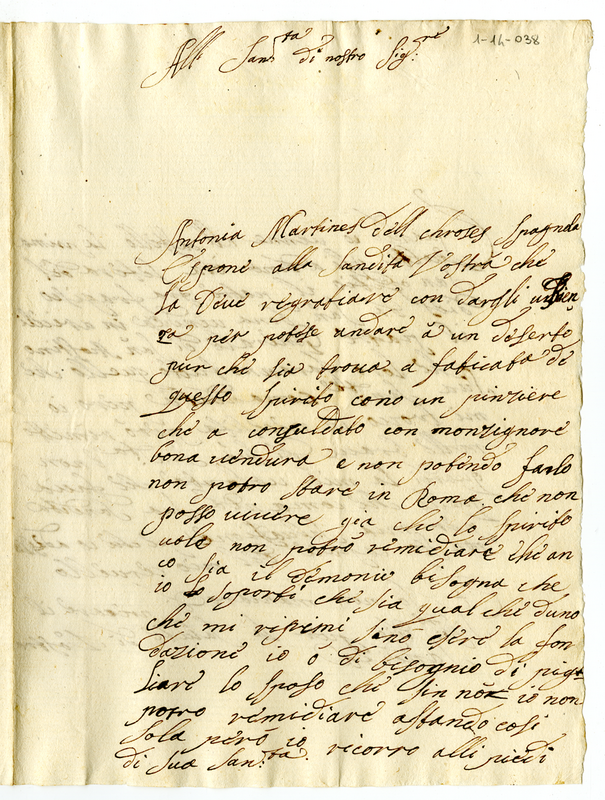 1-14-038
All San.ta di nostro Sig.re
Antonia Martines dell chroses spagnola
Espone alla Sandita Vostra che
la Deve regratiare con dargli
per potese andare à un deserto
pur che sia trova a fabicata de
questo spirito cono un pinziere
che a consuldato con monzignore
bona vendura e non potendo farlo
non potro stare in Roma che non
posso vivere gia che lo spirito
vole non potro remidiare che an
co sia il demonie bisogna che
io lo soporti che sia qual che duno
che mi reprimi sino esere la fon
dazione io ó di bisognio di pigl
liare lo sposo che sin non io non
potro remidiare astando cosi
sola però io ricorro alli piedi
di sua San.ta